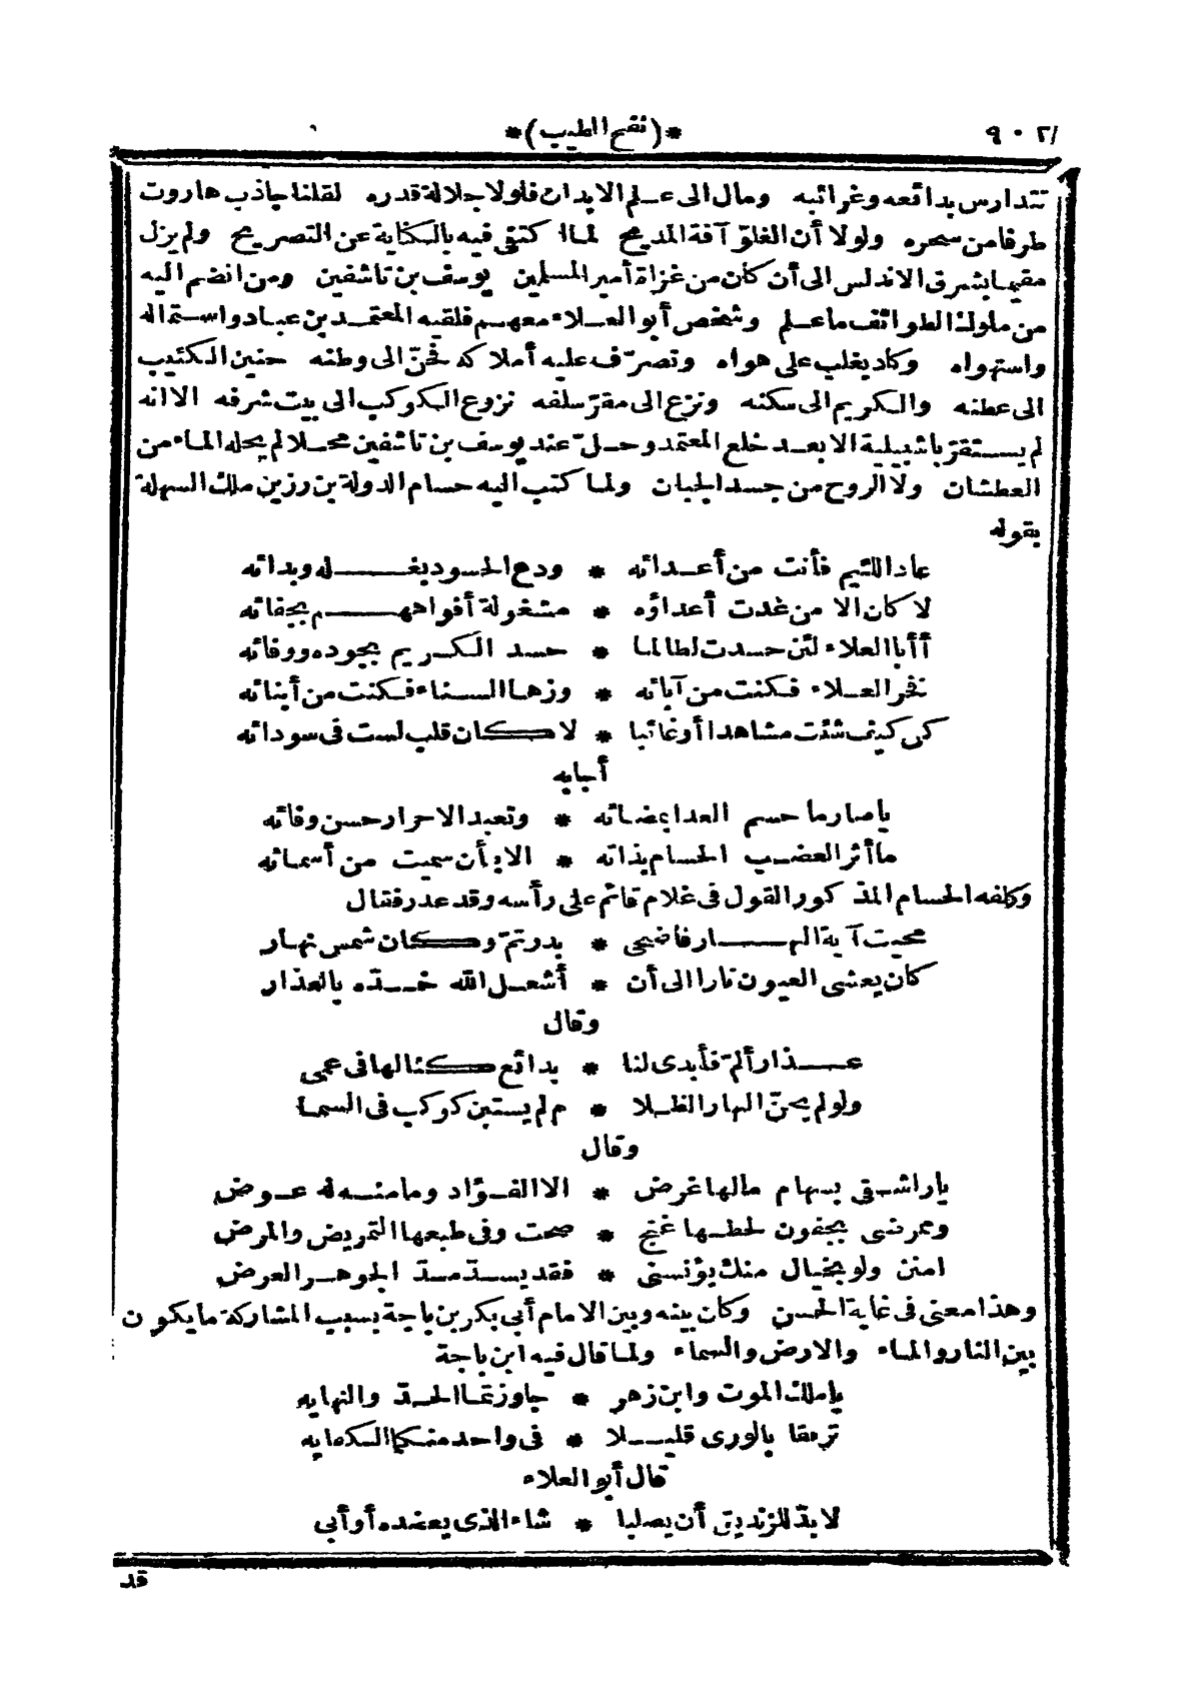 ٩٠٢ *(نفح الطيب)*
تتدارس بدائعه وغرائبه ومال الى علم الابدان فلولا جلالة قدره لقلنا جاذب هاروت
طرفا من سحره ولولا أن الغلوّ آفة المديح لما اكتفى فيه بالكناية عن التصريح ولم يزل
مقيما بشرق الاندلس الى أن كان من غزاة أمير المسلمين يوسف بن تاشفين ومن انضم اليه
من ملوك الطوائف ما علم وشخص أبو العلاء معهم فلقيه المعتمد بن عباد واستماله
واستهواه وكاد يغلب على هواه وتصرّف عليه أملاكه فحنّ الى وطنه حنين الكئيب
الى عطنه والكريم الى سكنه ونزع الى مقرّ سلفه نزوع الكوكب الى بيت شرفه الا انه
لم يستقرّ باشبيلية الا بعد خلع المعتمد وحلّ عند يوسف بن تاشفين محلا لم يحله الماء من
العطشان ولا الروح من جسد الجبان ولما كتب اليه حسام الدولة بن رزين ملك السهلة
بقوله
عاد اللئيم فأنت من أعدائه * ودع الحسود بغله وبدائه
لا كان الا من غدت أعداؤه * مشغولة أفواههم بجفائه
أأبا العلاء لئن حسدت لطالما * حسد الكريم بجوده ووفائه
فخر العلاء فكنت من آبائه * وزها السناء فكنت من أبنائه
كن كيف شئت مشاهدا أو غائبا * لا كان قلب لست فى سودائه
أجابه
يا صارما حسم العدا بمضائه * وتعبد الاحرار حسن وفائه
ما أثر العضب الحسام بذاته * الا بأن سميت من أسمائه
وكلفه الحسام المذكور القول فى غلام قائم على رأسه وقد عذر فقال
محيت آية النهار فأضحى * بدر تمّ وكان شمس نهار
كان يعشى العيون نارا الى أن * أشغل الله خدّه بالعذار
وقال
عذار ألمّ فأبدى لنا * بدائع كنا لها فى عمى
ولو لم يجنّ النهار الظلا * م لم يستبن كوكب فى السما
وقال
يا راشقى بسهام مالها غرض * الا الفؤاد وما منه له عوض
وممرضى بجفون لحظها غنج * صحت وفى طبعها التمريض والمرض
امنن ولو بخيال منك يؤنسنى * فقد يسدّ مسدّ الجوهر العرض
وهذا معنى فى غاية الحسن وكان بينه وبين الامام أبى بكر بن باجة بسبب المشاركة ما يكون
بين النار والماء والارض والسماء ولما قال فيه ابن باجة
يا ملك الموت وابن زهر * جاوزتما الحدّ والنهايه
ترفقا بالورى قليلا * فى واحد منكما الكفايه
قال أبو العلاء
لا بدّ للزنديق أن يصلبا * شاء الذى يعضده أو أبى
قد